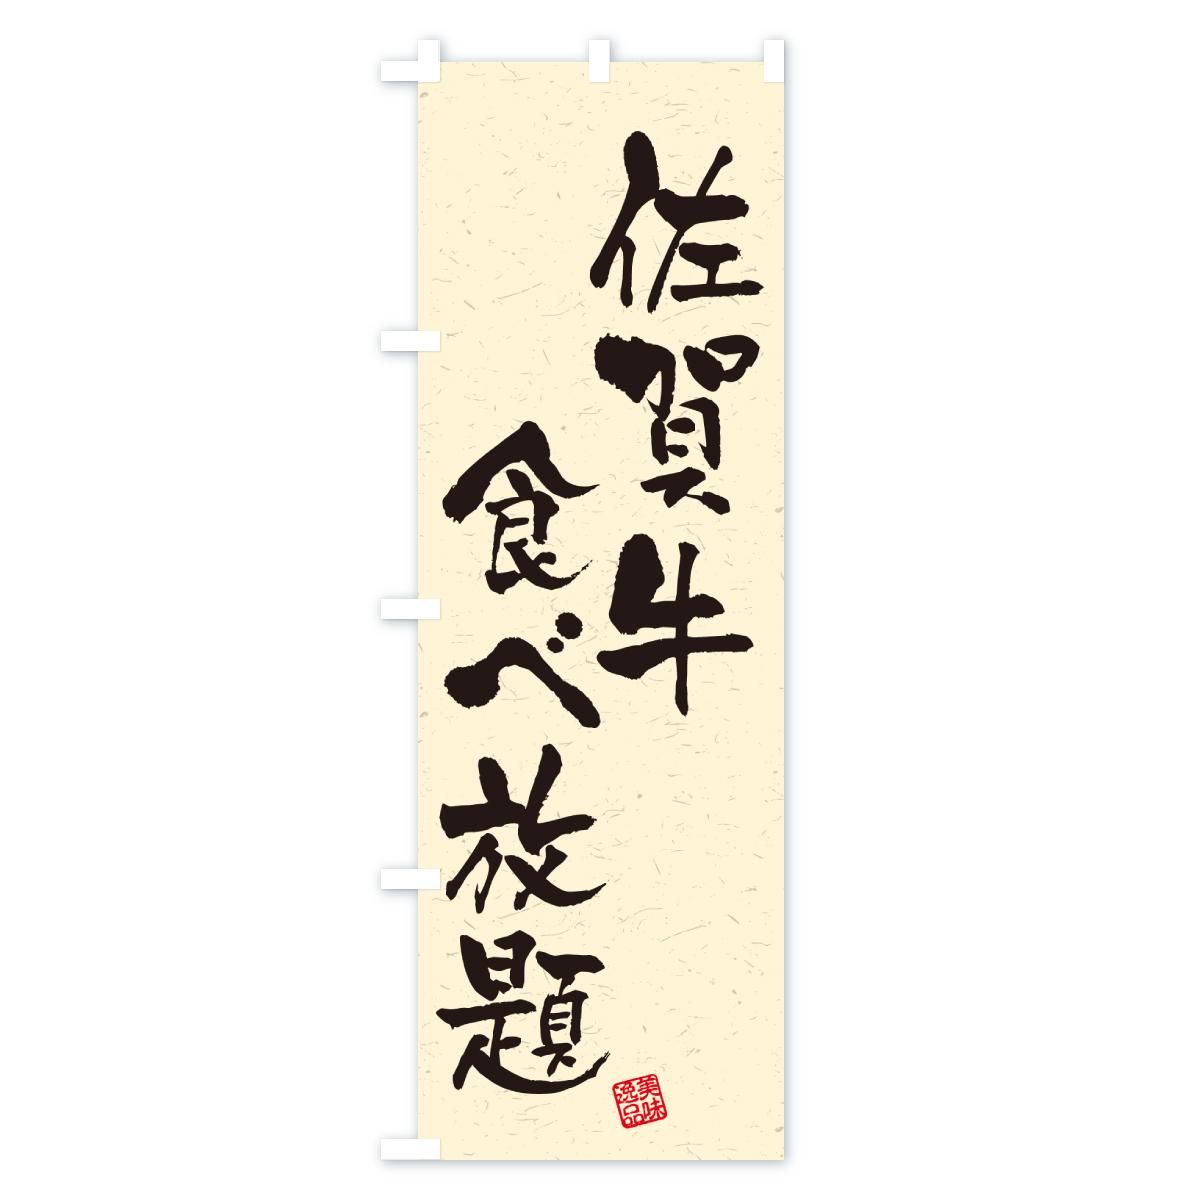 佐賀牛
食べ放題
美味
逸品